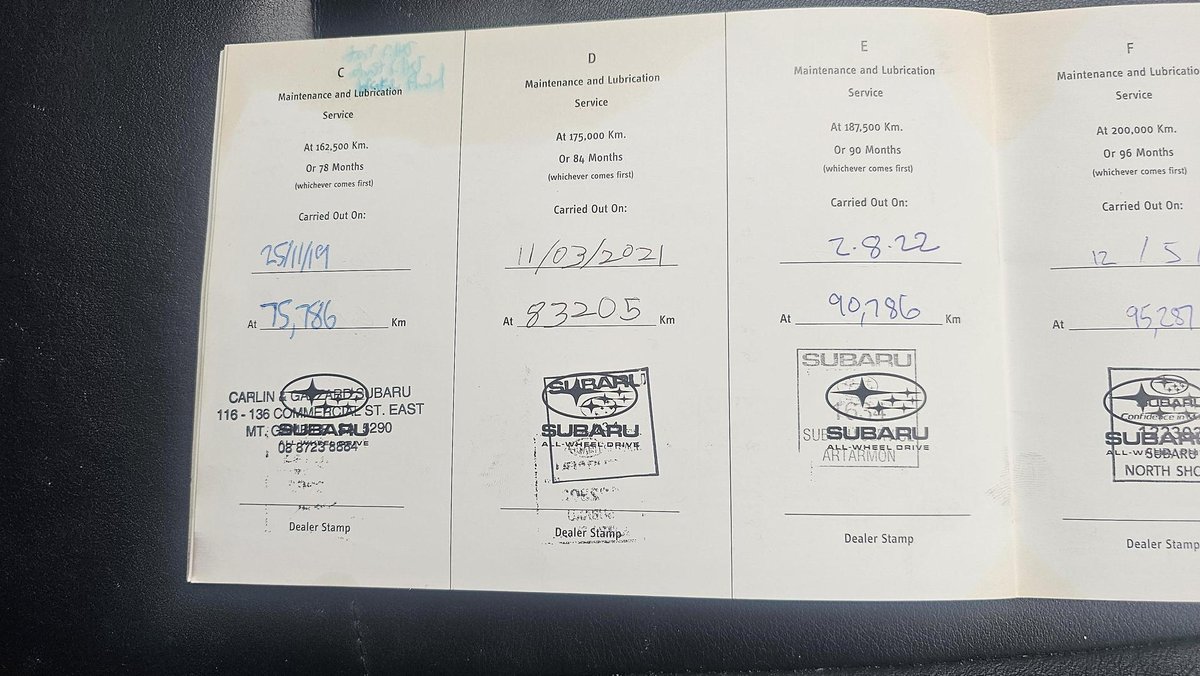 C
Maintenance and Lubrication
Service
At 162,500 Km.
Or 78 Months
(whichever comes first)
Carried Out On:
25/11/19
At 75,786 Km
CARLIN & GAZZARD SUBARU
116 - 136 COMMERCIAL ST. EAST
MT. 5290
SUBARU
ALL-WHEEL DRIVE
08 8723 8884
Dealer Stamp
D
Maintenance and Lubrication
Service
At 175,000 Km.
Or 84 Months
(whichever comes first)
Carried Out On:
11/03/2021
At 83205 Km
SUBARU
SUBARU
ALL-WHEEL DRIVE
Dealer Stamp
E
Maintenance and Lubrication
Service
At 187,500 Km.
Or 90 Months
(whichever comes first)
Carried Out On:
2.8.22
At 90,786 Km
SUBARU
SUBARU
ALL-WHEEL DRIVE
ARTARMON
Dealer Stamp
F
Maintenance and Lubricatio
Service
At 200,000 Km.
Or 96 Months
(whichever comes first)
Carried Out On:
12 / 5 /
At 95,287
UBARU
Confidence in M
SUBARU
ALL-W
SUBARU
NORTH SHO
Dealer Stamp